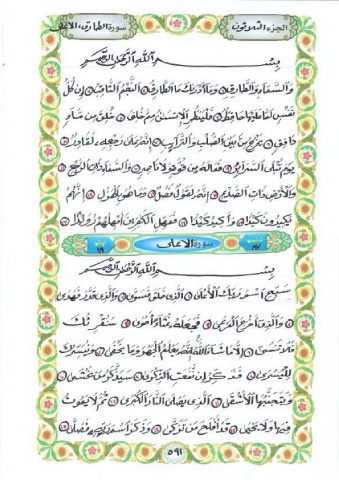 الجزء الثلاثون سورة الطارق، الأعلى
بسم الله الرحمن الرحيم
والسماء والطارق ١ وما أدراك ما الطارق ٢ النجم الثاقب ٣ إن كل
نفس لما عليها حافظ ٤ فلينظر الإنسان مم خلق ٥ خلق من ماء
دافق ٦ يخرج من بين الصلب والترائب ٧ إنه على رجعه لقادر ٨
يوم تبلى السرائر ٩ فما له من قوة ولا ناصر ١٠ والسماء ذات الرجع ١١
والأرض ذات الصدع ١٢ إنه لقول فصل ١٣ وما هو بالهزل ١٤ إنهم
يكيدون كيدا ١٥ وأكيد كيدا ١٦ فمهل الكافرين أمهلهم رويدا ١٧
سورة الأعلى ١٩
بسم الله الرحمن الرحيم
سبح اسم ربك الأعلى ١ الذي خلق فسوى ٢ والذي قدر فهدى
٣ والذي أخرج المرعى ٤ فجعله غثاء أحوى ٥ سنقرئك
فلا تنسى ٦ إلا ما شاء الله إنه يعلم الجهر وما يخفى ٧ ونيسرك
لليسرى ٨ فذكر إن نفعت الذكرى ٩ سيذكر من يخشى ١٠
ويتجنبها الأشقى ١١ الذي يصلى النار الكبرى ١٢ ثم لا يموت
فيها ولا يحيى ١٣ قد أفلح من تزكى ١٤ وذكر اسم ربه فصلى ١٥
٥٩١